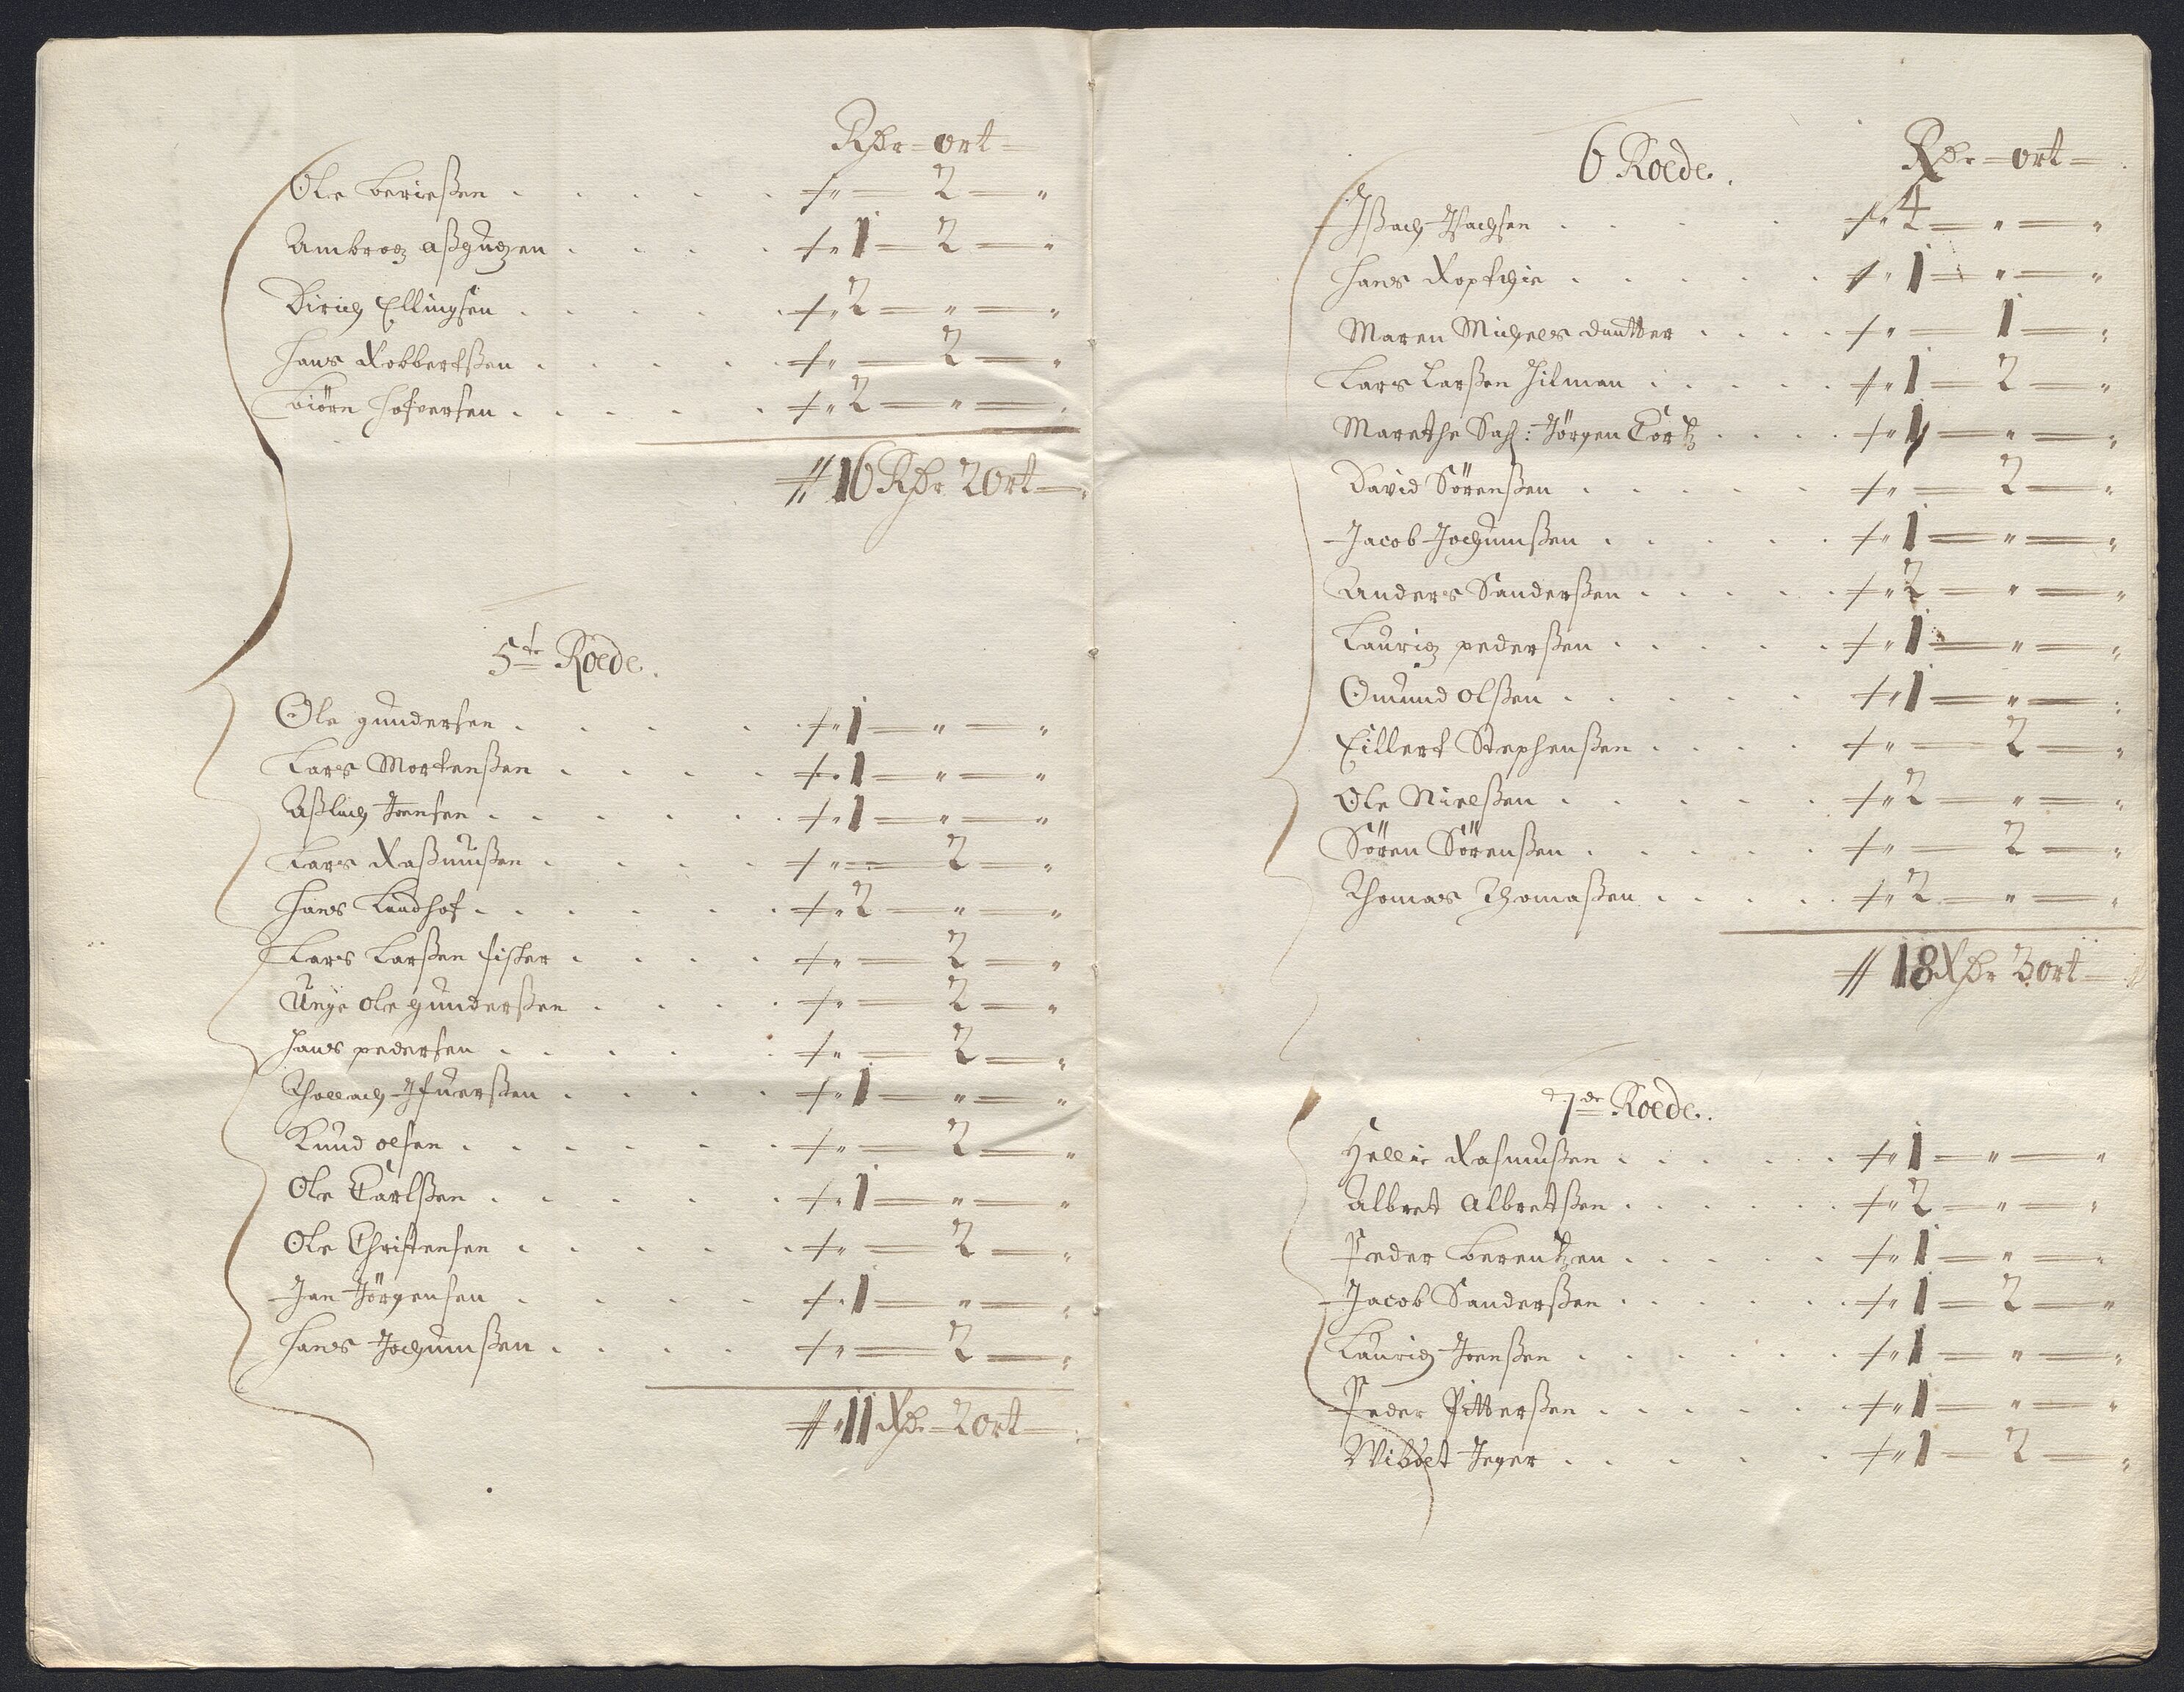 Rdr = ort =
Ole berießen . . . . . +〃 — 2 — 〃
Ambrotz aßgutzen . . . . +〃 1 — 2 — 〃
Dirich Ellingsen . . . . . +〃 2 — 〃 — 〃
Hans Robbertßen . . . . . +〃 — 2 — 〃
biørn Hofversen . . . . . +〃 2 — 〃 — 〃
# 16 Rdr 2 ort — 〃
5te Roede.
Ole gundersen . . . . +〃 1 — 〃 — 〃
Lars Mortenßen . . . . . +〃 1 — 〃 — 〃
Aßlach Joensen . . . . . . +〃 1 — 〃 — 〃
Lars Raßmußen . . . . +〃 — 2 — 〃
Hans Lundhof . . . . . . +〃 2 — 〃 — 〃
Lars Larßen fisker . . . . +〃 — 2 — 〃
Unge Ole gunderßen . . . . +〃 — 2 — 〃
Hans pedersen . . . . . +〃 — 2 — 〃
Thollach Ifuerßen . . . . . +〃 1 — 〃 — 〃
Knud olsen . . . . . . +〃 — 2 — 〃
Ole Carlßen . . . . . +〃 1 — 〃 — 〃
Ole Christensen . . . . . . +〃 — 2 — 〃
Jan Jörgensen . . . . +〃 1 — 〃 — 〃
Hans Jochumßen . . . . +〃 — 2 — 〃
# 〃 11 Rdr — 2 ort — 〃
6 Roede. Rdr = ort =
Ißach Isachsen . . . . +〃 4 — 〃 — 〃
Hans Roptchie . . . . . +〃 1 — 〃 — 〃
Maren Michels dautter . . . . +〃 — 1 — 〃
Lars Larßen Hilman . . . . . +〃 1 — 2 — 〃
Marethe Sahl: Jörgen Cortz . . . . +〃 1 — 〃 — 〃
David Sörenßen . . . . . +〃 — 2 — 〃
Jacob Jochumßen . . . . . +〃 1 — 〃 — 〃
Anders Sanderßen . . . . . +〃 2 — 〃 — 〃
Lauritz pederßen . . . . . +〃 1 — 〃 — 〃
Omund olßen . . . . . +〃 1 — 〃 — 〃
Eillert Stephenßen . . . . +〃 — 2 — 〃
Ole Nielßen . . . . . +〃 2 — 〃 — 〃
Sören Sörenßen . . . . . +〃 — 2 — 〃
Thomas Thomaßen . . . . . +〃 2 — 〃 — 〃
# 18 Rdr 3 ort —
7de Roede.
Hellie Rasmußen . . . . . +〃 1 — 〃 — 〃
Albret Albretßen . . . . . . +〃 2 — 〃 — 〃
Peder berentzen . . . . . +〃 1 — 〃 — 〃
Jacob Sanderßen . . . . . . +〃 1 — 2 — 〃
Laurich Joenßen . . . . . . +〃 1 — 〃 — 〃
Peder Pitterßen . . . . . . +〃 1 — 〃 — 〃
Jeger . . . . . +〃 1 — 2 — 〃